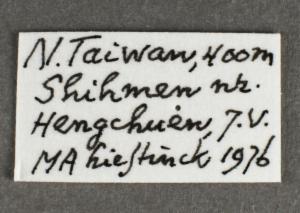 N. Taiwan, 400m
Shihmen nr.
Hengchuén, 7.V.
MA Lieftinck 1976